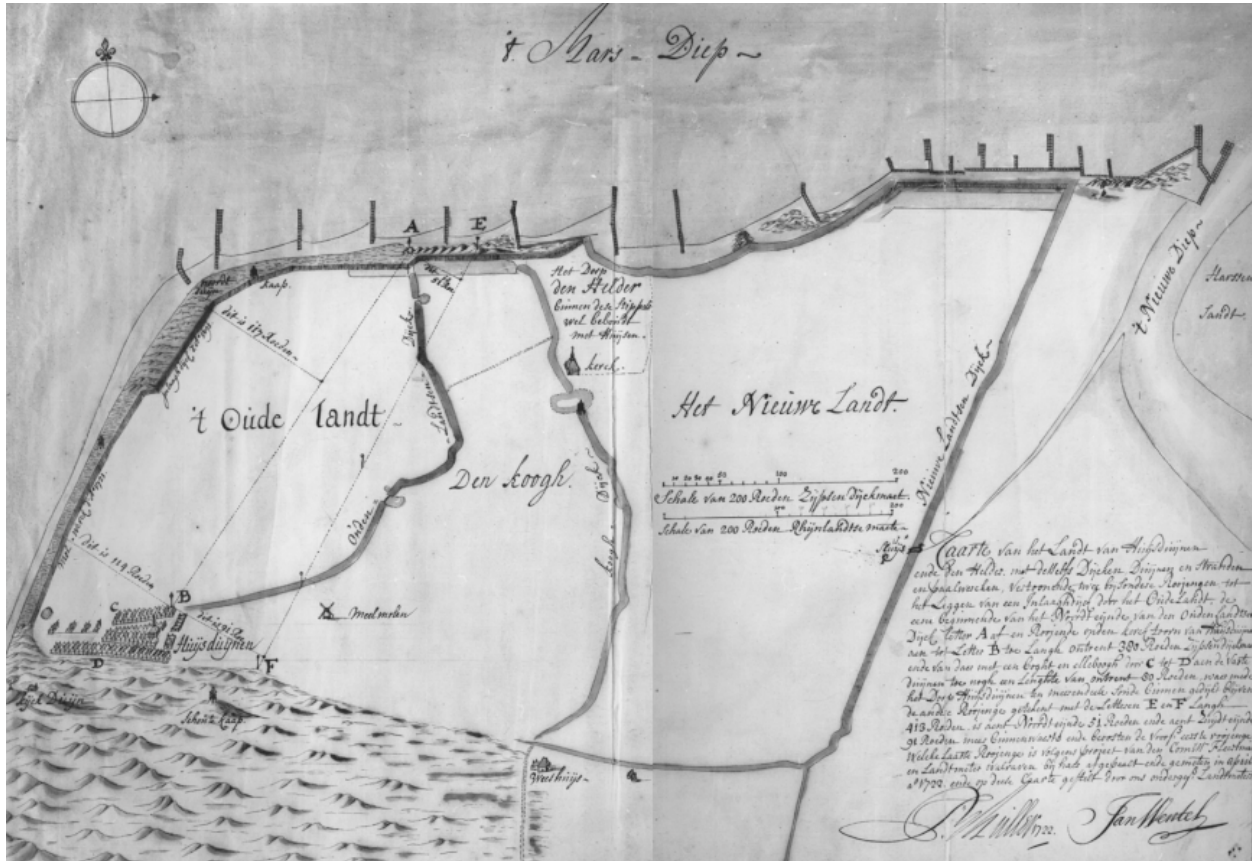 't Mars-Diep
A
E
Noordt
kaap.
Het Dorp
den Helder
binnen dese stippels
wel beboudt
met Huijsen.
kerck
't Nieuwe Diep
Harssen
Sandt.
dit is 117 Roeden
Dijck
Landtsen
Ouden
't Oude landt
Den koogh.
koogh
Dijck
Het Nieuwe Landt.
Nieuwe Landtsen Dijck
10 20 30 40 50 100 200
Schale van 200 Roeden Zijpsen Dijckmaet.
100 200
Schale van 200 Roeden Rhijnlandtse maete
Sluijs
dit is 119 Roeden
B
C
D
dit is 91
Huijsduijnen
F
Meelmolen
Dijck Duijn
Schouts kaap.
Weeshuijs
Caarte van het Landt van Huijsduijnen
ende den Helder, met desselfs Dijcken Duijnen en Stranden
en paalwercken, Vertoonende twee bijsondere Roijengen tot
het Leggen van een Inlaaghdijck door het Oude Landt, de
eene beginnende van het Noordt eijnde van den Ouden landtsen
Dijck letter A af en Roijende op den kerck tooren van Huijsduijnen
aen tot Letter B toe Langh ontrent 380 Roeden Zijpsendijckmaet
ende van daer met een boght en elleboogh door C tot D aen de Vaste
duijnen toe nogh een Lenghte van ontrent 80 Roeden, waer mede
het Dorp Huijsduijnen ten meerendeele soude binnen gedijckt blijven
de andere Roijenge getekent met de Letteren E en F Langh
413 Roeden, is aent Noordt eijnde 51 Roeden ende aent Zuijdt eijnde
91 Roeden meer binnenwaerts ende beoosten de voorsz. eerste roijenge
Welcke laatste Roijenge is volgens project van den Commiss.
en Landtmeter bij haer afgepeast ende gemeten in April
Aº 1722. ende op dese Caarte gestelt door ons ondergesz. Landmeters
1722.
Jan Wentel